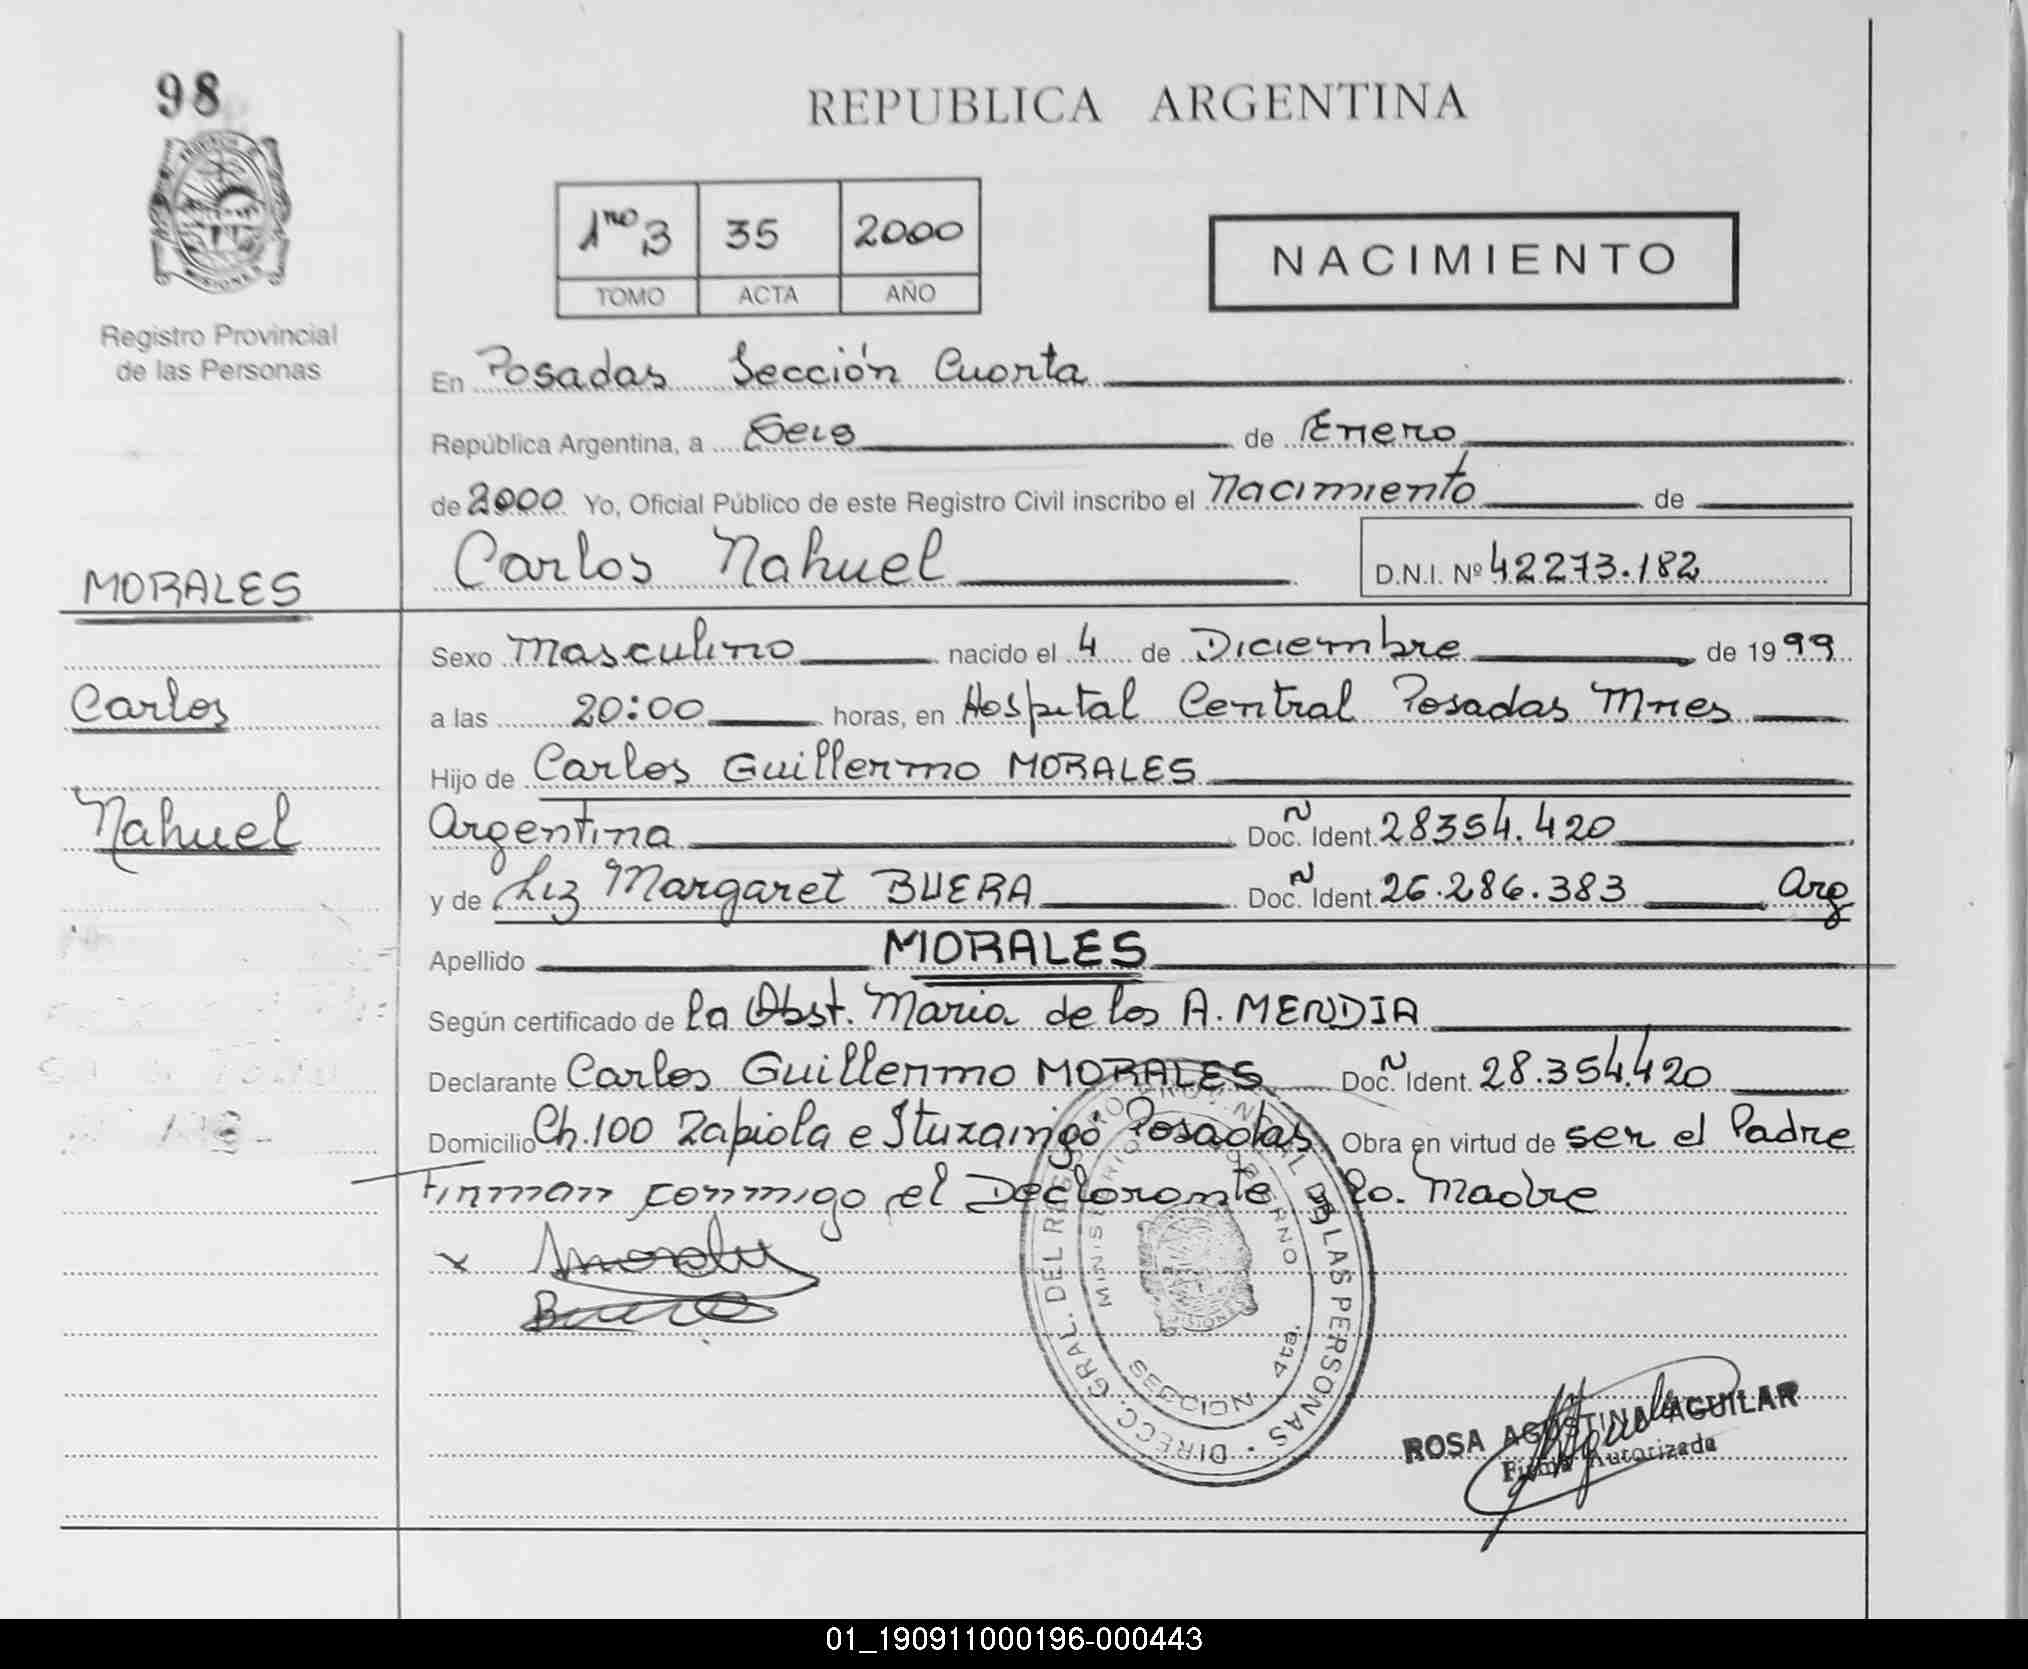 98
REPUBLICA ARGENTINA
1ro B 35 2000
TOMO ACTA AÑO
NACIMIENTO
Registro Provincial
de las Personas
En Posadas Sección Cuarta
República Argentina, a Seis de Enero
de 2000 Yo, Oficial Público de este Registro Civil inscribo el Nacimiento de
Carlos Nahuel D.N.I. Nº 42273.182
MORALES
Carlos
Nahuel
Sexo Masculino nacido el 4 de Diciembre de 1999
a las 20:00 horas, en Hospital Central Posadas Mnes
Hijo de Carlos Guillermo MORALES
Argentina Doc. Ident. 28354.420
y de Liz Margaret BUERA Doc. Ident. 26.286.383 Arg
Apellido MORALES
Según certificado de la Obst. Maria de los A. MENDIA
Declarante Carlos Guillermo MORALES Doc. Ident. 28.354.420
Domicilio Ch.100 Zapiola e Ituzaingó Posadas Obra en virtud de ser el Padre
Firman conmigo el Declarante y la Madre
DIRECC. GRAL. DEL REGISTRO PROVINCIAL DE LAS PERSONAS
MINISTERIO DE GOBIERNO
SECCION 4ta.
MISIONES
ROSA AGOSTINA AGUILAR
Firma Autorizada
01_190911000196-000443